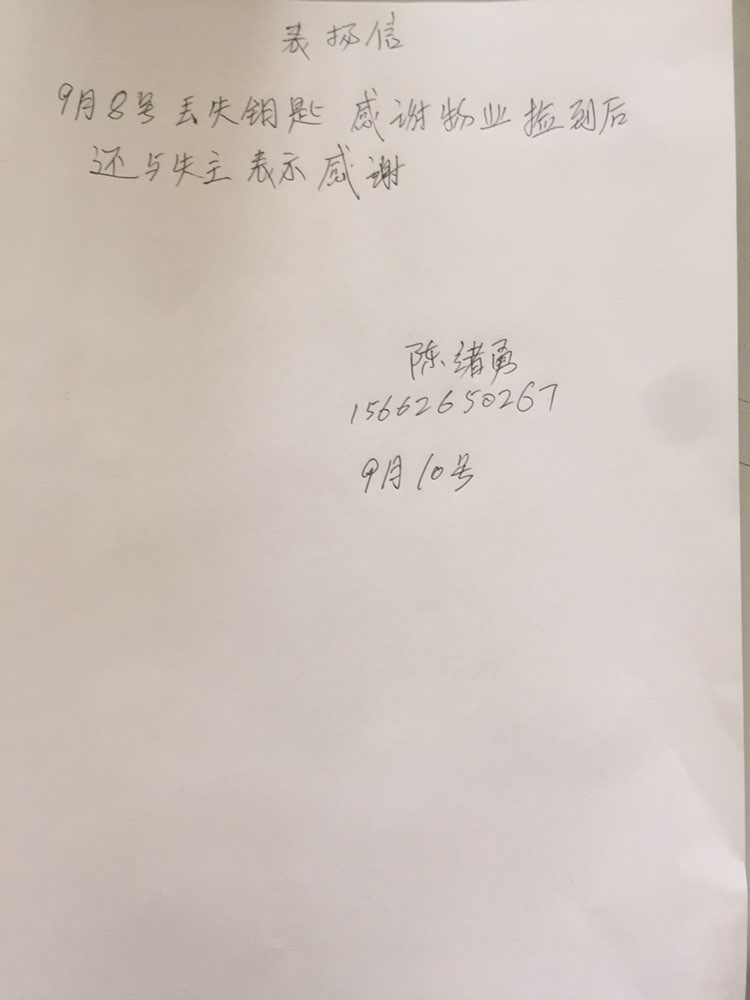 表扬信
9月8号丢失钥匙 感谢物业捡到后
还与失主 表示感谢
陈绪勇
15662650267
9月10号